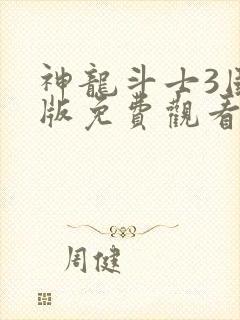 神龍斗士3國
版免費觀看
周健